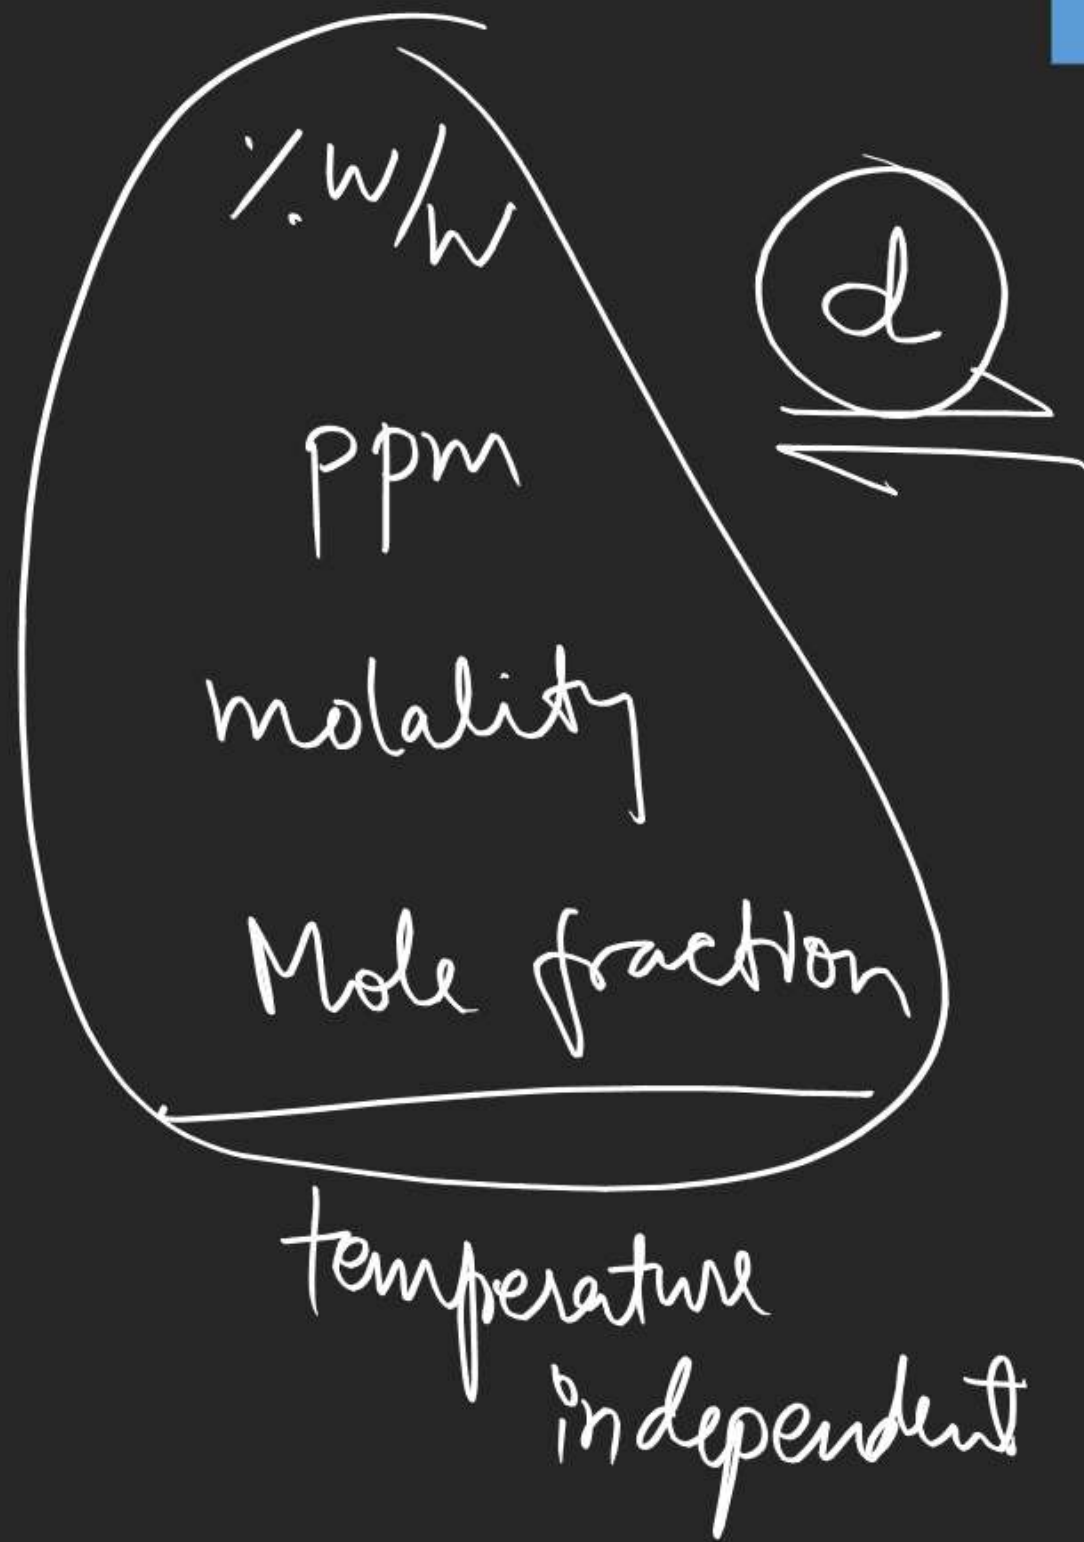 % w/w
d
ppm
molality
Mole fraction
temperature
independent